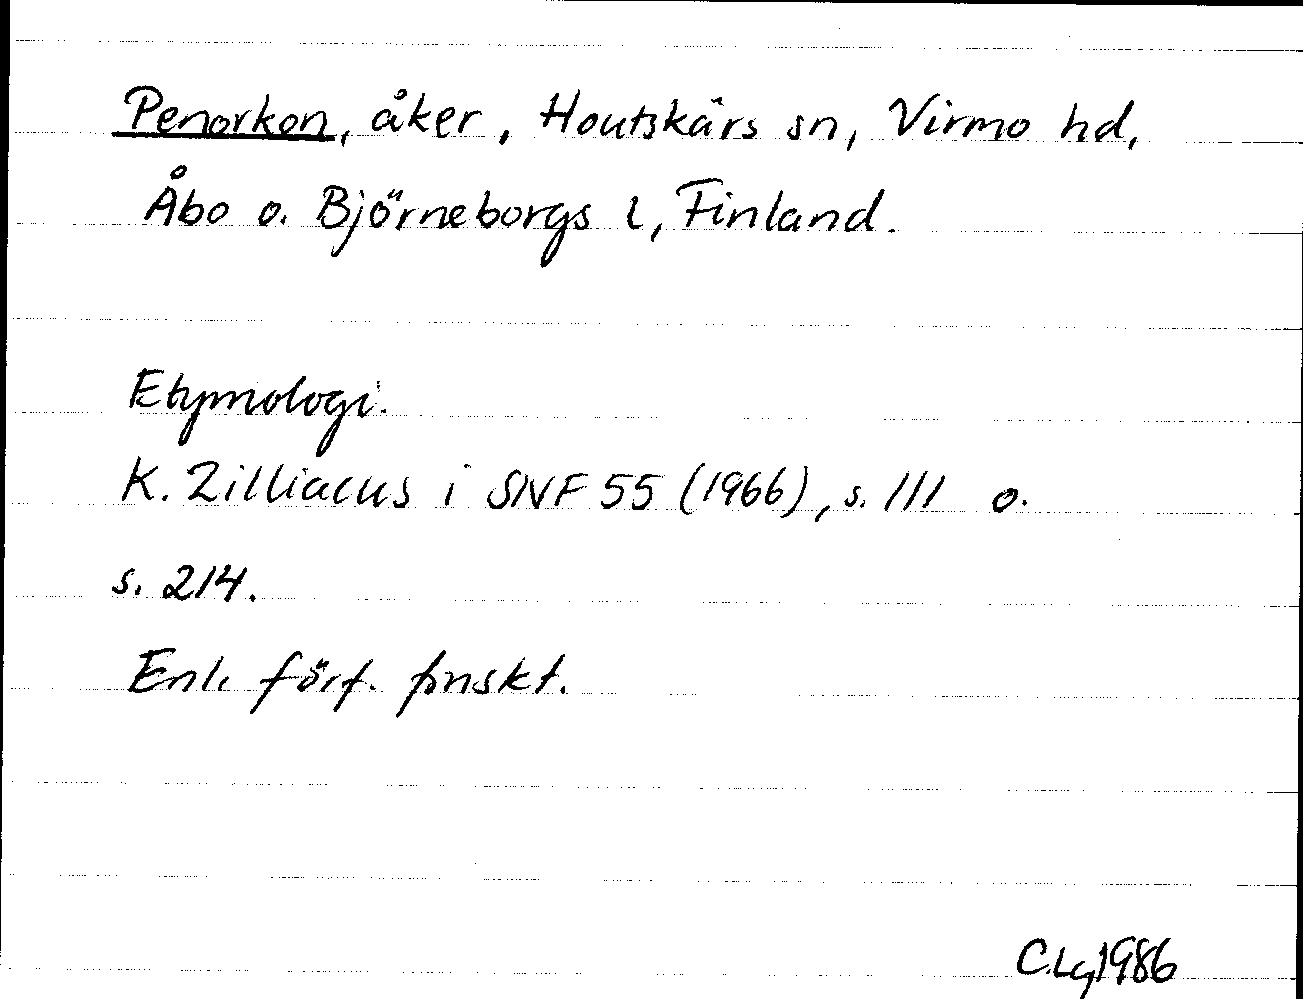 Penorkon, åker, Houtskärs sn, Virmo hd,
Åbo o. Björneborgs l, Finland.
Etymologi.
K. Zilliacus i SNF 55 (1966), s. 111 o.
s. 214.
Enl. förf. finskt.
CLg 1986